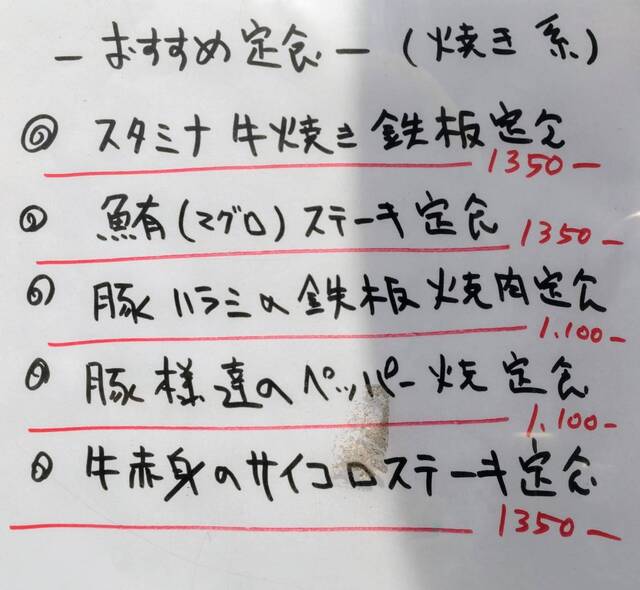 －おすすめ定食－（焼き系）
◎ スタミナ牛焼き鉄板定食
1350－
◎ 鮪(マグロ)ステーキ定食
1350－
◎ 豚ハラミの鉄板焼肉定食
1.100－
◎ 豚様達のペッパー焼定食
1.100－
◎ 牛赤身のサイコロステーキ定食
1350－